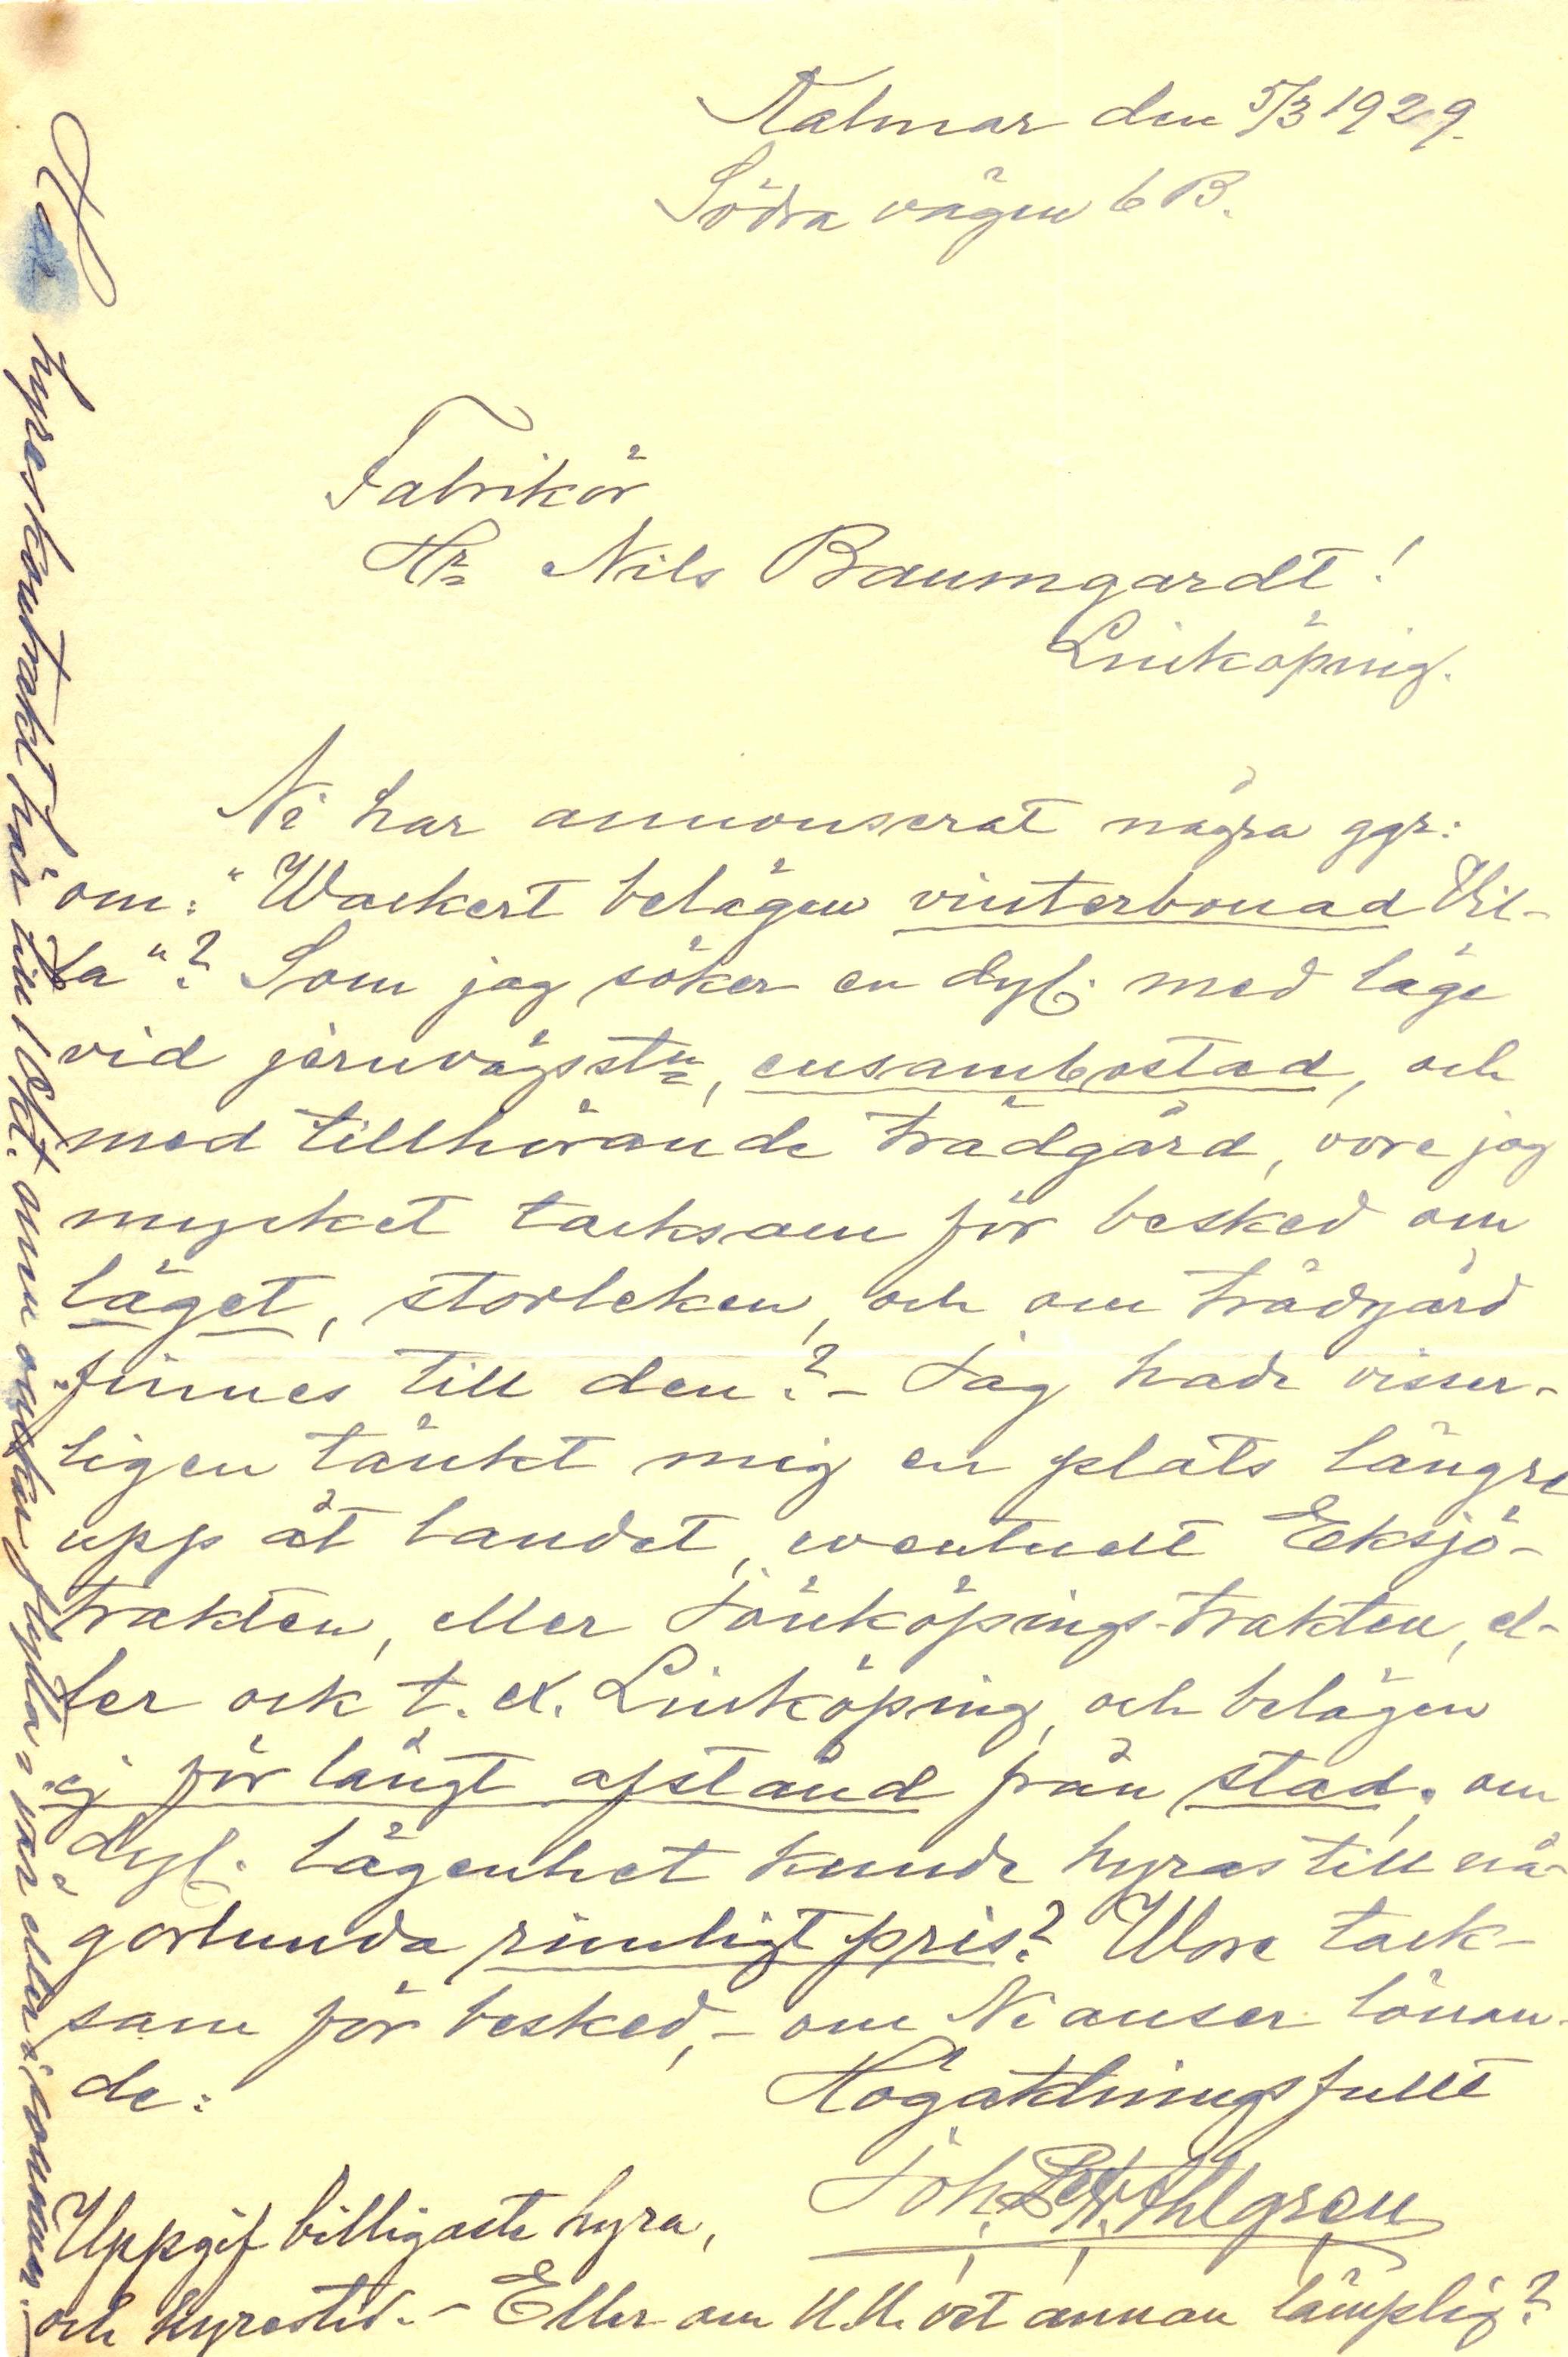 Kalmar den 5/3 1929.
Södra vägen 6 B.
Fabrikör
Hr Nils Baumgardt!
Linköping.
Ni har annonserat några ggr:
om: "Wackert belägen vinterbonad Vil-
la"? Som jag söker en dyl. med läge
vid järnvägsstn, ensambostad, och
med tillhörande trädgård, vore jag
mycket tacksam för besked om
läget, storleken, och om trädgård
finnes till den? - Jag hade visser-
ligen tänkt mig en plats längre
upp åt landet, eventuellt Eksjö-
trakten, eller Jönköpings-trakten, el-
ler ock t. ex. Linköping, och belägen
ej för långt afstånd från stad, om
dyl. lägenhet kunde hyras till nå-
gorlunda rimligt pris? Wore tack-
sam för besked, - om Ni anser lönan-
de:
Högaktningsfullt
Joh. Ahlgren
Uppgif billigaste hyra,
och hyrestid. - Eller om N.N. vet annan lämplig?
hyreskontrakt här till 1 Okt. men önskar flytta i vår eller i sommar.